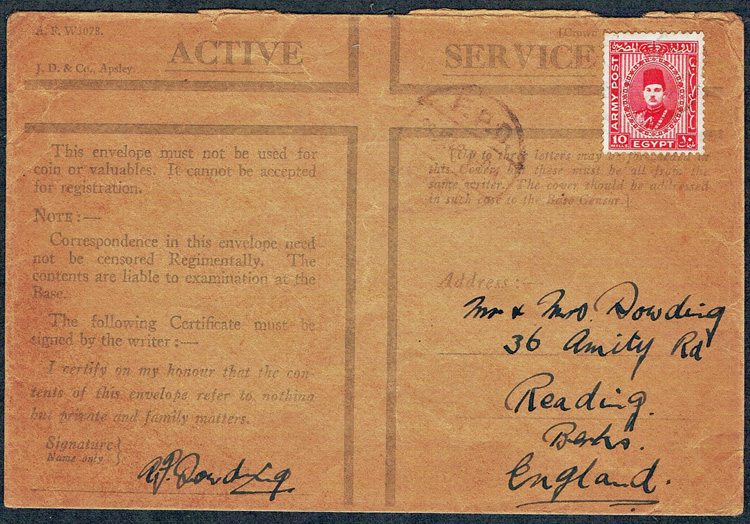 A. F. W3078.
J. D. & Co., Apsley.
ACTIVE
SERVICE
[Crown
ARMY POST
10
MILLS
EGYPT
البوستة الحربية
١٠
F.P.O.
This envelope must not be used for
coin or valuables. It cannot be accepted
for registration.
NOTE:—
Correspondence in this envelope need
not be censored Regimentally. The
contents are liable to examination at the
Base.
The following Certificate must be
signed by the writer:—
I certify on my honour that the con-
tents of this envelope refer to nothing
but private and family matters.
Signature }
Name only
[Up to three letters may
this Cover, but these must be all from the
same writer. The cover should be addressed
in such case to the Base Censor.]
Address:—
Mr & Mrs. Dowding
36 Amity Rd
Reading.
Berks.
England.
Dowding